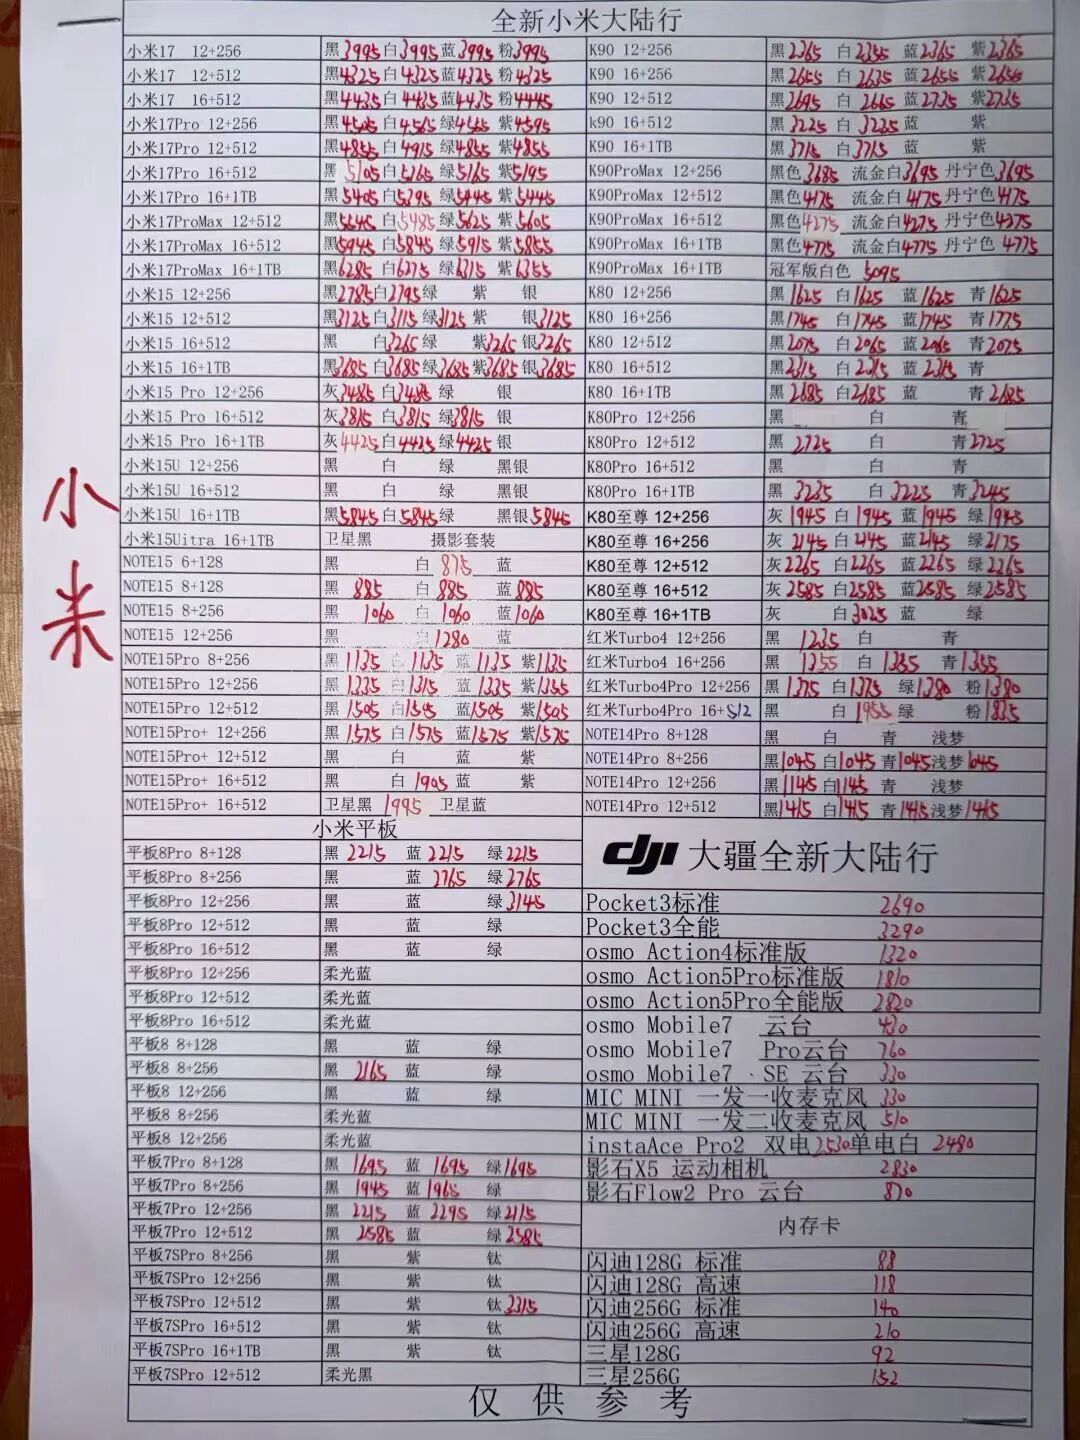 全新小米大陆行
小米17 12+256 黑3995 白3995 蓝3995 粉3995 K90 12+256 黑2365 白2355 蓝2365 紫2365
小米17 12+512 黑4325 白4325 蓝4325 粉4325 K90 16+256 黑2655 白2635 蓝2655 紫2655
小米17 16+512 黑4435 白4435 蓝4435 粉4445 K90 12+512 黑2695 白2665 蓝2735 紫2735
小米17Pro 12+256 黑 白4565 绿4565 紫4595 k90 16+512 黑3225 白3225 蓝 紫
小米17Pro 12+512 黑4855 白4915 绿4855 紫4855 K90 16+1TB 黑3715 白3715 蓝 紫
小米17Pro 16+512 黑5105 白5265 绿5165 紫5195 K90ProMax 12+256 黑色3685 流金白3695 丹宁色3695
小米17Pro 16+1TB 黑5405 白5395 绿5445 紫5445 K90ProMax 12+512 黑色4175 流金白4175 丹宁色4175
小米17ProMax 12+512 黑5645 白5485 绿5625 紫5605 K90ProMax 16+512 黑色4275 流金白4275 丹宁色4275
小米17ProMax 16+512 黑5945 白5845 绿5915 紫5855 K90ProMax 16+1TB 黑色4775 流金白4775 丹宁色4775
小米17ProMax 16+1TB 黑6285 白6275 绿6315 紫6355 K90ProMax 16+1TB 冠军版白色 5095
小米15 12+256 黑2785 白2795 绿 紫 银 K80 12+256 黑1625 白1625 蓝1625 青1625
小米15 12+512 黑3125 白3115 绿3125 紫 银3125 K80 16+256 黑1745 白1745 蓝1745 青1775
小米15 16+512 黑 白3265 绿 紫3265 银3265 K80 12+512 黑2075 白2065 蓝2065 青2075
小米15 16+1TB 黑3685 白3685 绿3685 紫3685 银3685 K80 16+512 黑2315 白2315 蓝2315 青
小米15 Pro 12+256 灰3485 白3485 绿 银 K80 16+1TB 黑2685 白2685 蓝 青2685
小米15 Pro 16+512 灰3815 白3815 绿3815 银 K80Pro 12+256 黑 白 青
小米15 Pro 16+1TB 灰4425 白4425 绿4425 银 K80Pro 12+512 黑2725 白 青2725
小米15U 12+256 黑 白 绿 黑银 K80Pro 16+512 黑 白 青
小米15U 16+512 黑 白 绿 黑银 K80Pro 16+1TB 黑3235 白3225 青3245
小米15U 16+1TB 黑5845 白5845 绿 黑银5845 K80至尊 12+256 灰1945 白1945 蓝1945 绿1945
小米15Uitra 16+1TB 卫星黑 摄影套装 K80至尊 16+256 灰2145 白2145 蓝2145 绿2175
NOTE15 6+128 黑 白875 蓝 K80至尊 12+512 灰2265 白2265 蓝2265 绿2265
NOTE15 8+128 黑885 白885 蓝885 K80至尊 16+512 灰2585 白2585 蓝2585 绿2585
NOTE15 8+256 黑1060 白1060 蓝1060 K80至尊 16+1TB 灰 白3025 蓝 绿
NOTE15 12+256 黑 白1280 蓝 红米Turbo4 12+256 黑1235 白 青
NOTE15Pro 8+256 黑1135 白1135 蓝1135 紫1135 红米Turbo4 16+256 黑1355 白1355 青1355
NOTE15Pro 12+256 黑1335 白1315 蓝1335 紫1355 红米Turbo4Pro 12+256 黑1375 白1375 绿1380 粉1380
NOTE15Pro 12+512 黑1505 白1505 蓝1505 紫1505 红米Turbo4Pro 16+512 黑 白1955 绿 粉1835
NOTE15Pro+ 12+256 黑1575 白1575 蓝1575 紫1575 NOTE14Pro 8+128 黑 白 青 浅梦
NOTE15Pro+ 12+512 黑 白 蓝 紫 NOTE14Pro 8+256 黑1045 白1045 青1045 浅梦1045
NOTE15Pro+ 16+512 黑 白1905 蓝 紫 NOTE14Pro 12+256 黑1145 白1145 青 浅梦
NOTE15Pro+ 16+512 卫星黑 1995 卫星蓝 NOTE14Pro 12+512 黑1415 白1415 青1415 浅梦1415
小米
小米平板
dji 大疆全新大陆行
平板8Pro 8+128 黑2215 蓝2215 绿2215
平板8Pro 8+256 黑 蓝2765 绿2765
平板8Pro 12+256 黑 蓝 绿3145 Pocket3标准 2690
平板8Pro 12+512 黑 蓝 绿 Pocket3全能 3290
平板8Pro 16+512 黑 蓝 绿 osmo Action4标准版 1320
平板8Pro 12+256 柔光蓝 osmo Action5Pro标准版 1810
平板8Pro 12+512 柔光蓝 osmo Action5Pro全能版 2820
平板8Pro 16+512 柔光蓝 osmo Mobile7 云台 430
平板8 8+128 黑 蓝 绿 osmo Mobile7 Pro云台 760
平板8 8+256 黑2165 蓝 绿 osmo Mobile7 SE 云台 330
平板8 12+256 黑 蓝 绿 MIC MINI 一发一收麦克风 330
平板8 8+256 柔光蓝 MIC MINI 一发二收麦克风 510
平板8 12+256 柔光蓝 instaAce Pro2 双电2530单电白 2480
平板7Pro 8+128 黑1695 蓝1695 绿1695 影石X5 运动相机 2830
平板7Pro 8+256 黑1945 蓝1965 绿 影石Flow2 Pro 云台 870
平板7Pro 12+256 黑2215 蓝2295 绿2115 内存卡
平板7Pro 12+512 黑2585 蓝 绿2585
平板7SPro 8+256 黑 紫 钛 闪迪128G 标准 88
平板7SPro 12+256 黑 紫 钛 闪迪128G 高速 118
平板7SPro 12+512 黑 紫 钛3315 闪迪256G 标准 140
平板7SPro 16+512 黑 紫 钛 闪迪256G 高速 210
平板7SPro 16+1TB 黑 紫 钛 三星128G 92
平板7SPro 12+512 柔光黑 三星256G 152
仅供参考